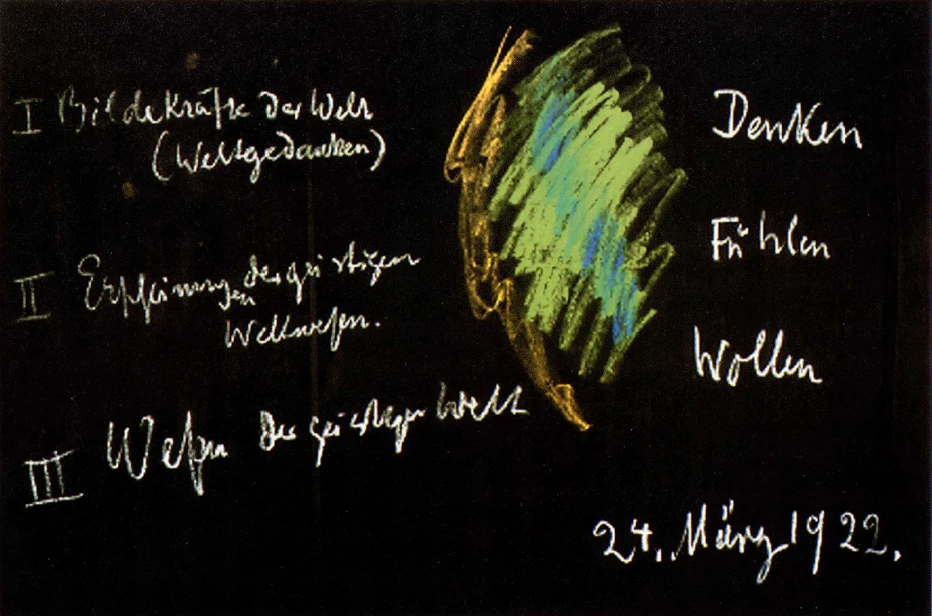 I Bildekräfte der Welt
(Weltgedanken)
II Erscheinungen der geistigen
Weltwesen.
III Wesen der geistigen Welt
Denken
Fühlen
Wollen
24. März 1922.